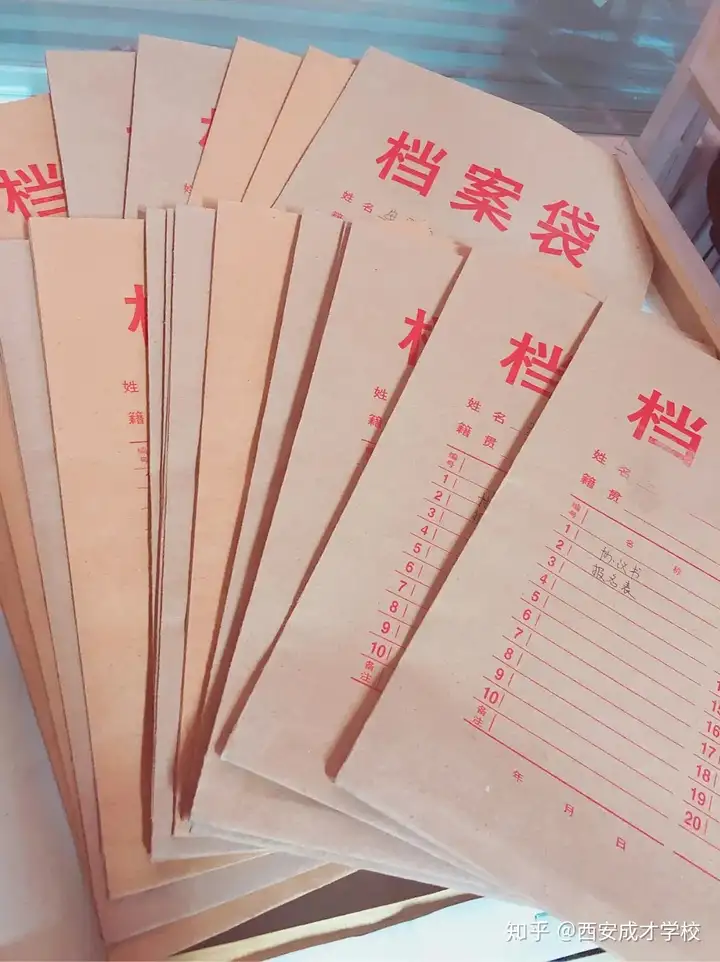 档
档案袋
姓名
姓
籍
档
姓名
籍贯
编号
1
2
3
4
5
6
7
8
9
10
备注
档
姓名
籍贯
编号 名称
1 协议书
2 报名表
3
4
5
6
7
8
9
10
备注
16
17
18
19
20
年 月 日
知乎 @西安成才学校